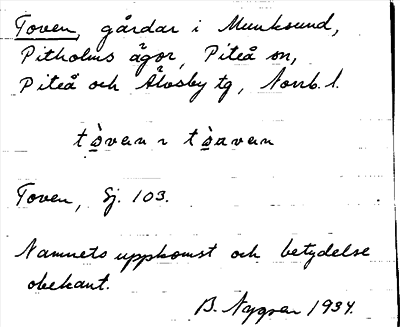 Toven, gårdar i Munksund,
Pitholms ägor, Piteå sn,
Piteå och Älvsby tg, Norrb. l.
tòven ~ tòavan
Toven, Gj. 103.
Namnets uppkomst och betydelse
obekant.
B. Nygren 1934.